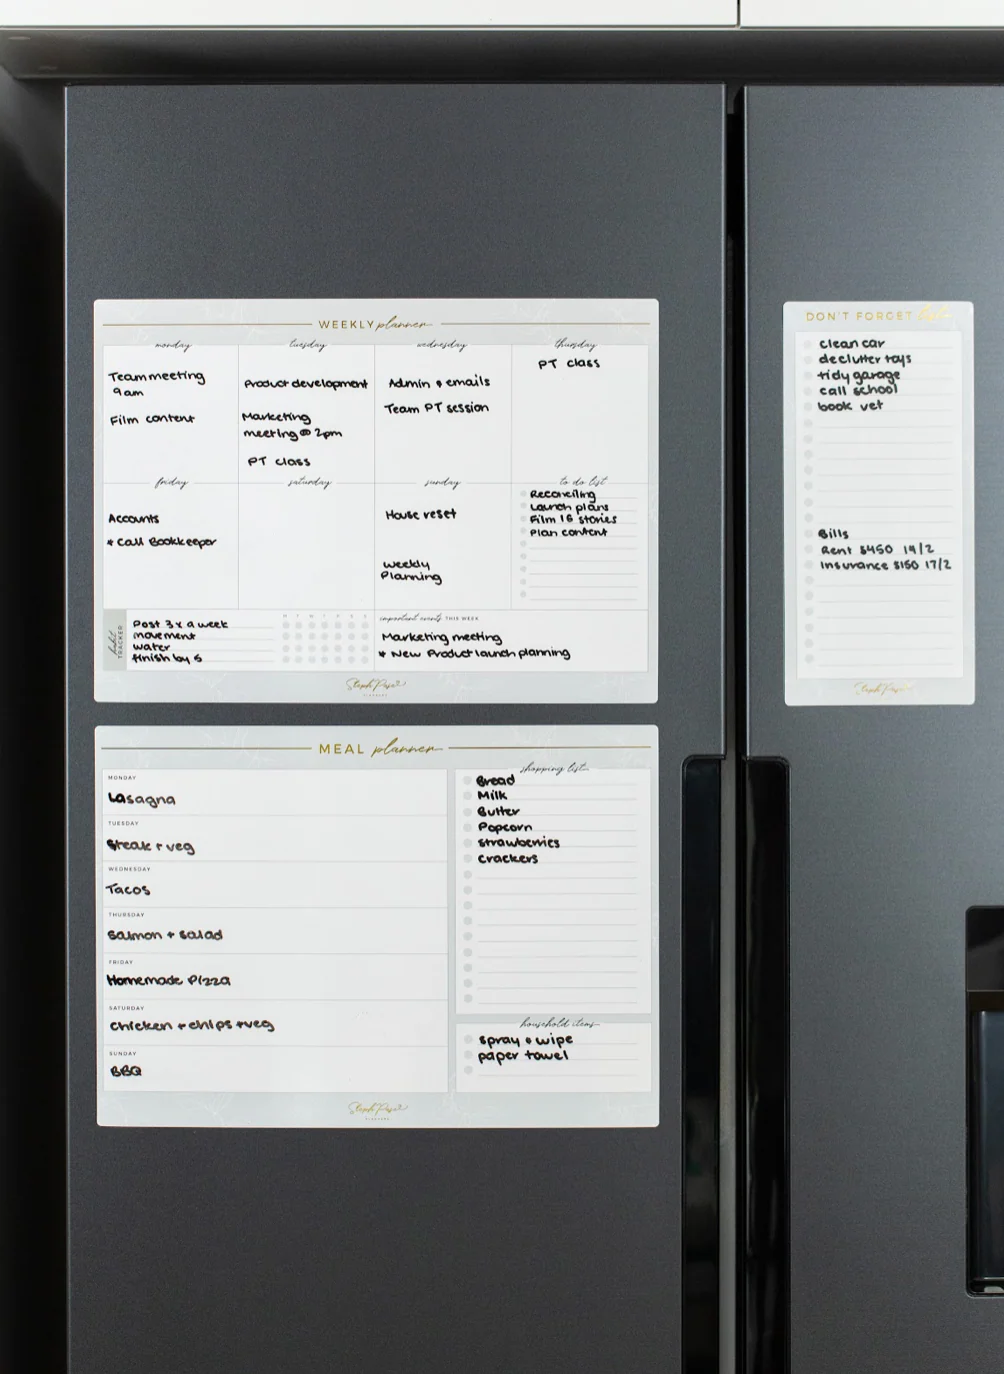 WEEKLY planner
monday
Team meeting
9am
Film content
tuesday
Product development
Marketing
meeting @ 2pm
PT class
wednesday
Admin & emails
Team PT session
thursday
PT class
friday
Accounts
+ Call Bookkeeper
saturday
sunday
House reset
weekly
Planning
to do list
Reconciling
Launch plans
Film 16 stories
Plan content
habit TRACKER
M T W T F S S
Post 3x a week
movement
water
finish by 5
important events THIS WEEK
Marketing meeting
+ New Product launch planning
Steph Pase
PLANNERS
MEAL planner
MONDAY
Lasagna
TUESDAY
Steak + veg
WEDNESDAY
Tacos
THURSDAY
Salmon + salad
FRIDAY
Homemade Pizza
SATURDAY
Chicken + chips + veg
SUNDAY
BBQ
shopping list
Bread
Milk
Butter
Popcorn
strawberries
crackers
household items
spray & wipe
paper towel
Steph Pase
PLANNERS
DON'T FORGET list
clean car
declutter toys
tidy garage
call school
book vet
Bills
Rent $450 14/2
Insurance $150 17/2
Steph Pase